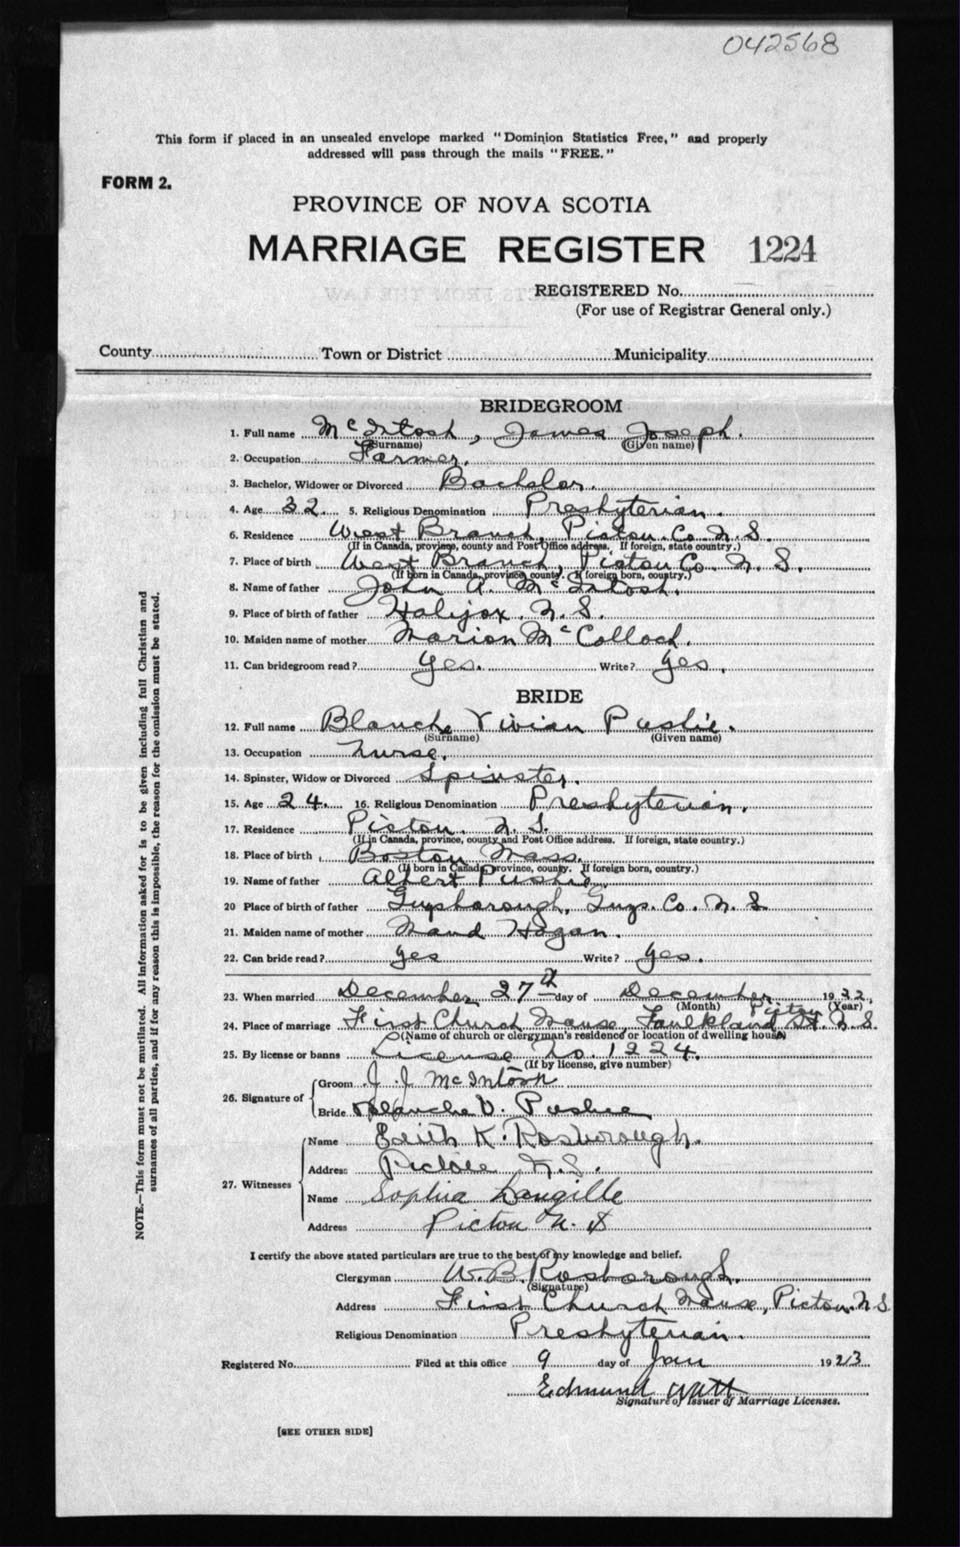 042568
This form if placed in an unsealed envelope marked "Dominion Statistics Free," and properly
addressed will pass through the mails "FREE."
FORM 2.
PROVINCE OF NOVA SCOTIA
MARRIAGE REGISTER 1224
REGISTERED No.
(For use of Registrar General only.)
County Town or District Municipality
BRIDEGROOM
1. Full name McIntosh, James Joseph.
(Surname) (Given name)
2. Occupation Farmer.
3. Bachelor, Widower or Divorced Bachelor.
4. Age 32. 5. Religious Denomination Presbyterian.
6. Residence West Branch, Pictou Co. N. S.
(If in Canada, province, county and Post Office address. If foreign, state country.)
7. Place of birth West Branch, Pictou Co. N. S.
(If born in Canada, province county. If foreign born, country.)
8. Name of father John A. McIntosh.
9. Place of birth of father Halifax. N. S.
10. Maiden name of mother Marion McColloch.
11. Can bridegroom read? Yes. Write? Yes.
BRIDE
12. Full name Blanche Vivian Pushie.
(Surname) (Given name)
13. Occupation Nurse.
14. Spinster, Widow or Divorced Spinster.
15. Age 24. 16. Religious Denomination Presbyterian.
17. Residence Pictou. N. S.
(If in Canada, province, county and Post Office address. If foreign, state country.)
18. Place of birth Boston Mass.
(If born in Canada, province, county. If foreign born, country.)
19. Name of father Albert Pushie.
20 Place of birth of father Guysborough, Guys. Co. N. S.
21. Maiden name of mother Maud Hogan.
22. Can bride read? Yes Write? Yes.
23. When married December 27th day of December 1922.
(Month) (Year)
24. Place of marriage First Church Manse, Faulkland St. Pictou N. S.
(Name of church or clergyman's residence or location of dwelling house)
25. By license or banns License No. 1224.
(If by license, give number)
26. Signature of
Groom J. J McIntosh
Bride Blanche V. Pushie
27. Witnesses
Name Edith K. Rosborough.
Address Pictou N. S.
Name Sophia Langille
Address Pictou N. S
I certify the above stated particulars are true to the best of my knowledge and belief.
Clergyman W. B. Rosborough.
(Signature)
Address First Church Manse, Pictou N. S.
Religious Denomination Presbyterian.
Registered No. Filed at this office 9 day of Jan 1923
Edmund Watt
Signature of Issuer of Marriage Licenses.
[SEE OTHER SIDE]
NOTE.—This form must not be mutilated. All information asked for is to be given including full Christian and
surnames of all parties, and if for any reason this is impossible, the reason for the omission must be stated.